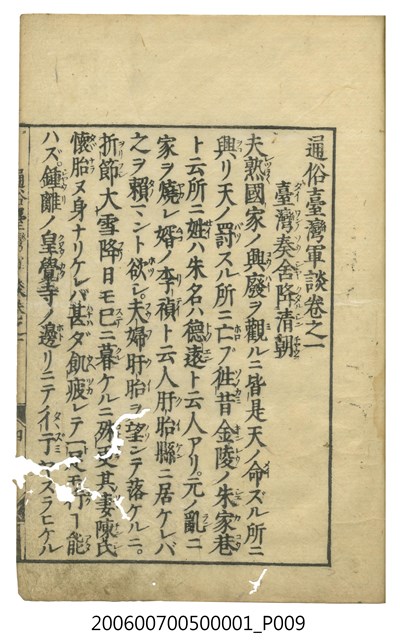 通俗臺灣軍談卷之一
臺灣奏舍降清朝
夫熟國家ノ興廢ヲ觀ルニ皆是天ノ命ズル所ニ
興リ天ノ罰スル所ニ亡フ徃昔金陵ノ朱家巷
ト云所ニ姓ハ朱名ハ德遠ト云人アリ元ノ亂ニ
家ヲ燒レ婿ノ李禎ト云人盱眙縣ニ居ケレバ
之ヲ賴ント欲シ夫婦盱眙ヲ望ンテ落ケルニ
折節大雪降日モ已ニ暮ケルニ殊更其妻陳氏
懷胎ヌ身ナリケレバ甚ダ飢疲レテ一足モ行「能
ハズ鍾離ノ皇覺寺ノ邊リニテイ亍
通俗臺灣
200600700500001_P009